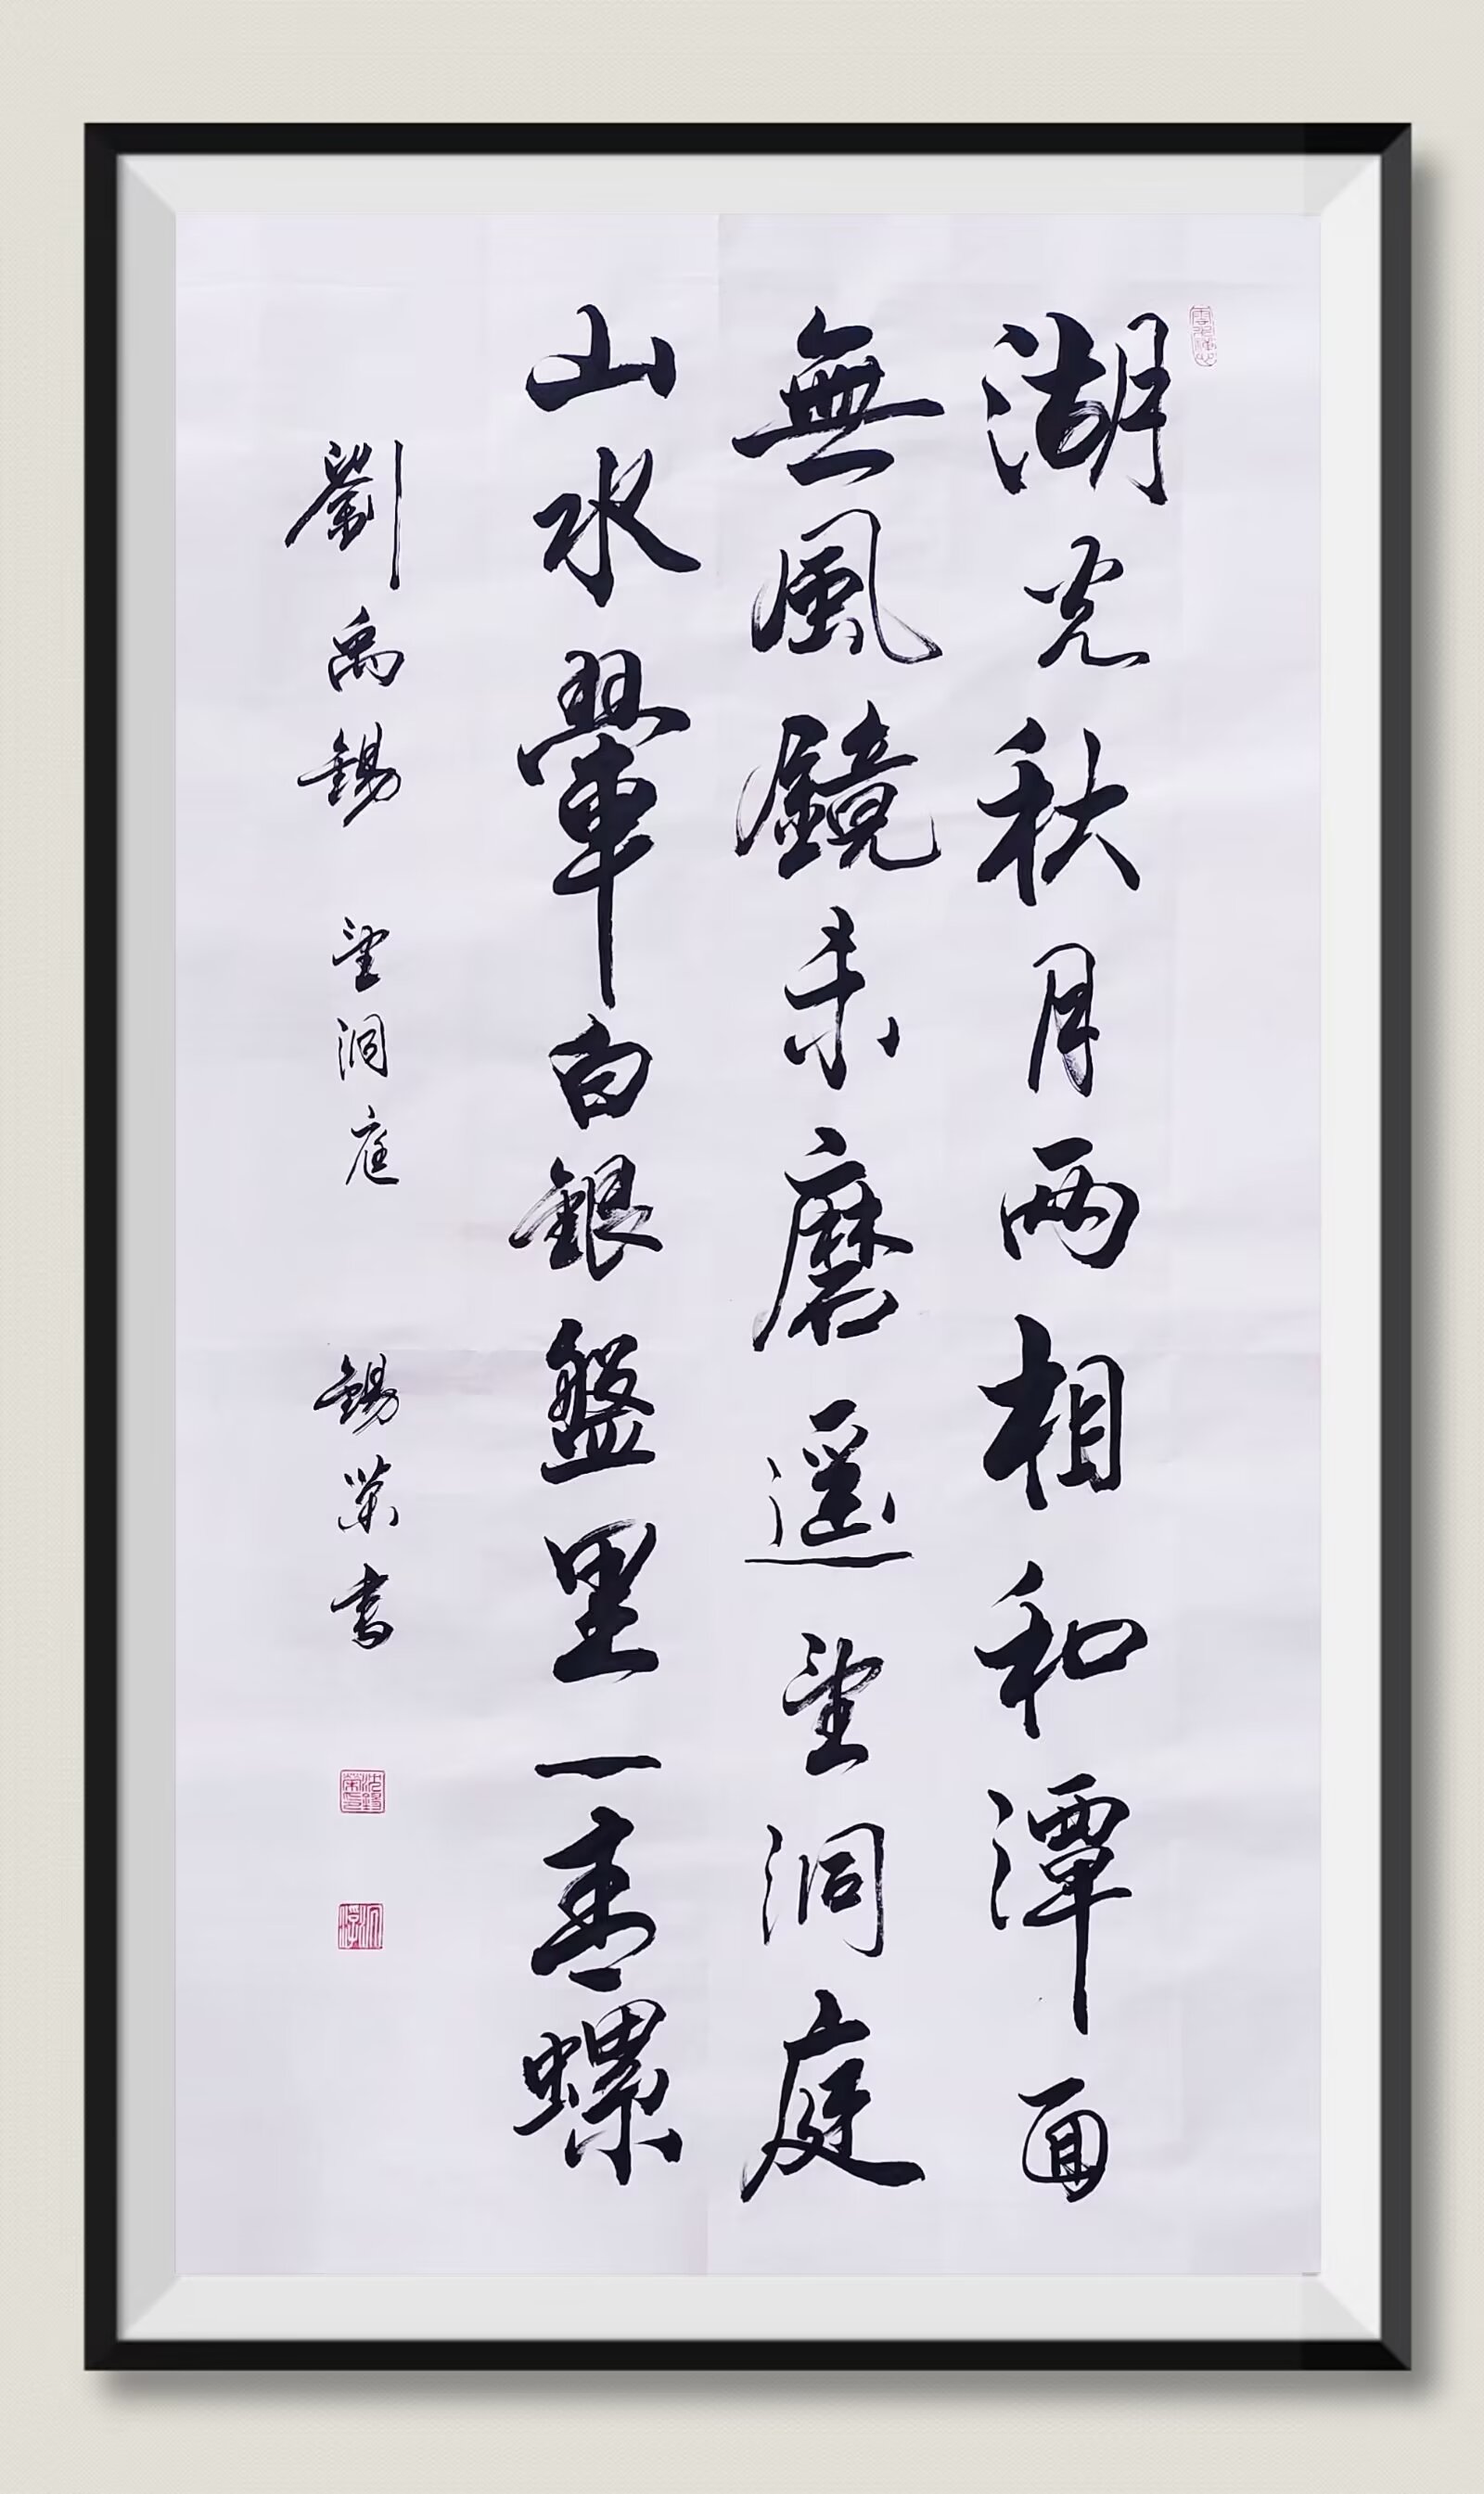 湖光秋月两相和潭面
無風鏡未磨遥望洞庭
山水翠白銀盤里一青螺
劉禹錫 望洞庭 錫荣書